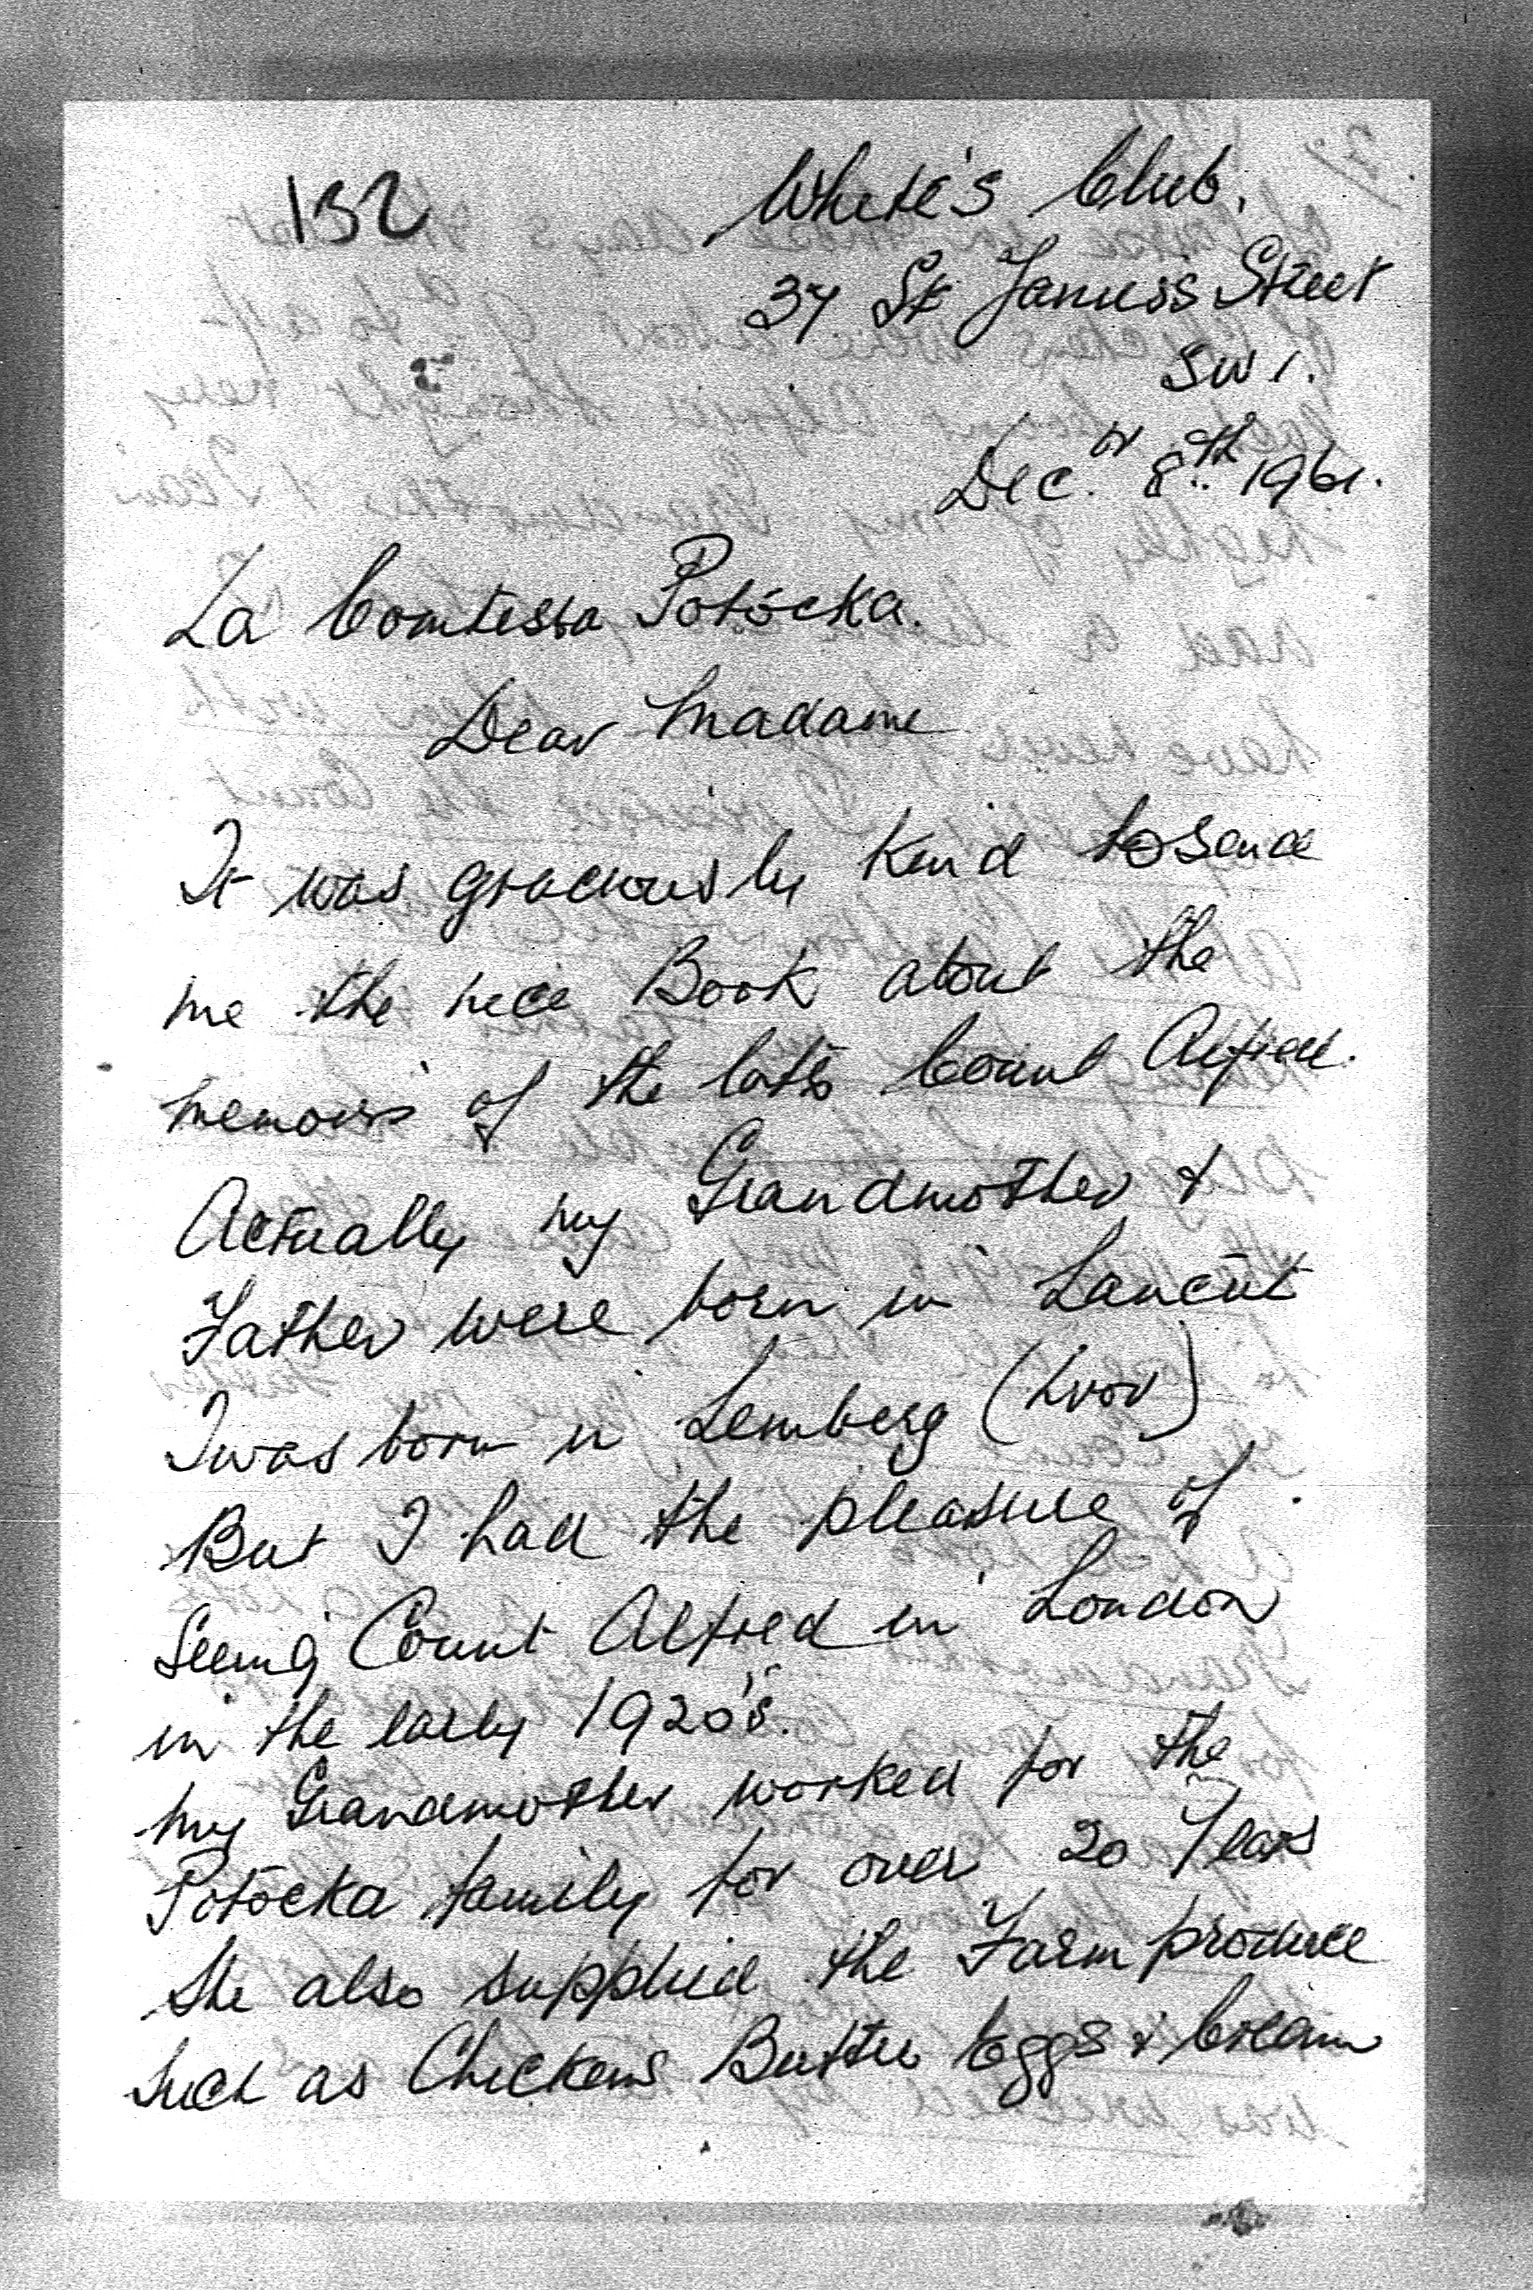 132
White's Club.
37 St Jamess Street
SW1.
Dec.r 8th 1961.
La Comtessa Potócka.
Dear Madame
It was graciously kind to send
me the nice Book about the
memoirs of the late Count Alfred.
Actually my Grandmother &
Father were born in Lancut
I was born in Lemberg (Lvov)
But I had the pleasure of
Seeing Count Alfred in London
in the early 1920's.
My Grandmother worked for the
Potócka family for over 20 Years
She also supplied the Farm produce
Such as Chickens Butter Eggs & Cream